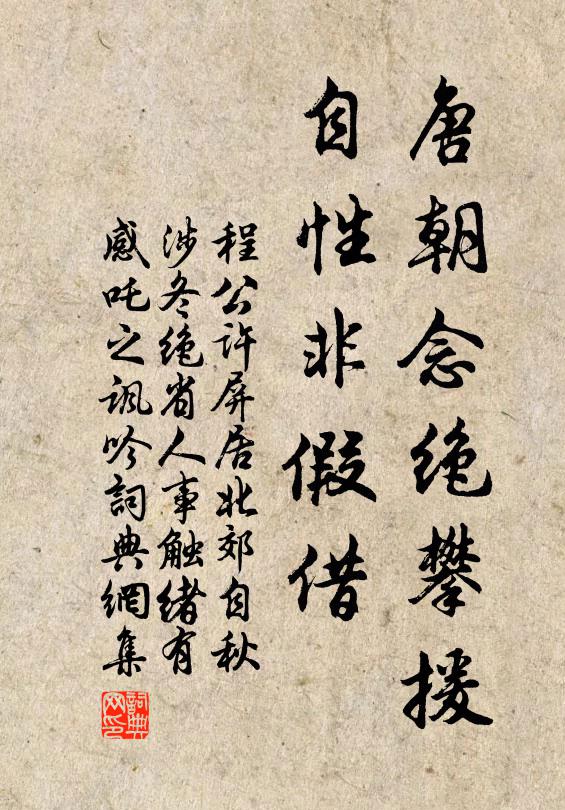 唐朝念絶攀援
自性非假借
程公许屏居北郊自秋
涉冬绝省人事触绪有
感吒之讽吟詞典網集
詞典
网印